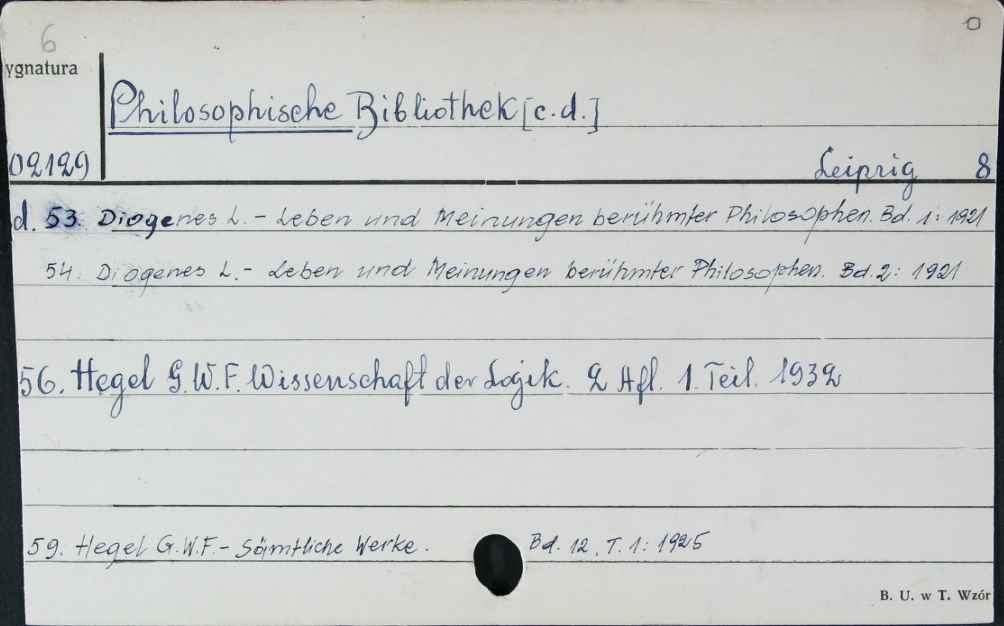 6
ygnatura
Philosophische Bibliothek [c.d.]
02129
Leipzig 8
d. 53. Diogenes L. - Leben und Meinungen berühmter Philosophen. Bd. 1: 1921
54. Diogenes L. - Leben und Meinungen berühmter Philosophen. Bd. 2: 1921
56. Hegel G.W.F. Wissenschaft der Logik. 2 Afl. 1. Teil. 1932
59. Hegel G.W.F. - Sämtliche Werke. Bd. 12, T. 1: 1925
B. U. w T. Wzór